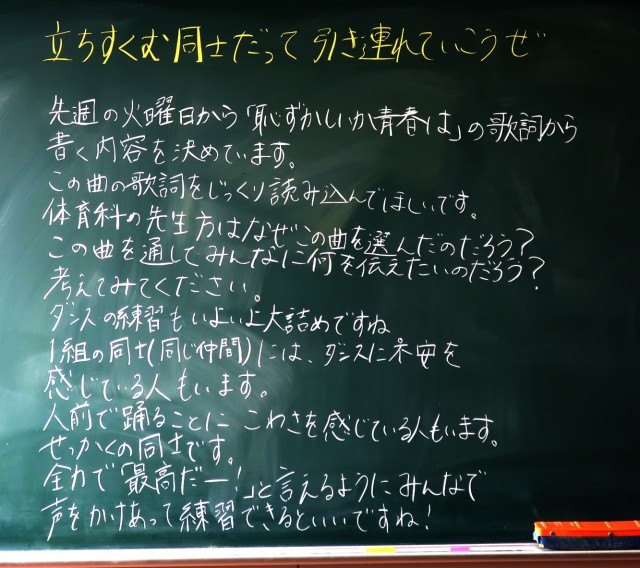 立ちすくむ同士だって引き連れていこうぜ
先週の火曜日から「恥ずかしいか青春は」の歌詞から
書く内容を決めています。
この曲の歌詞をじっくり読み込んでほしいです。
体育科の先生方はなぜこの曲を選んだのだろう?
この曲を通してみんなに何を伝えたいのだろう?
考えてみてください。
ダンスの練習もいよいよ大詰めですね
1組の同士(同じ仲間)には、ダンスに不安を
感じている人もいます。
人前で踊ることに こわさを感じている人もいます。
せっかくの同士です。
全力で「最高だー!」と言えるようにみんなで
声をかけあって練習できるといいですね!